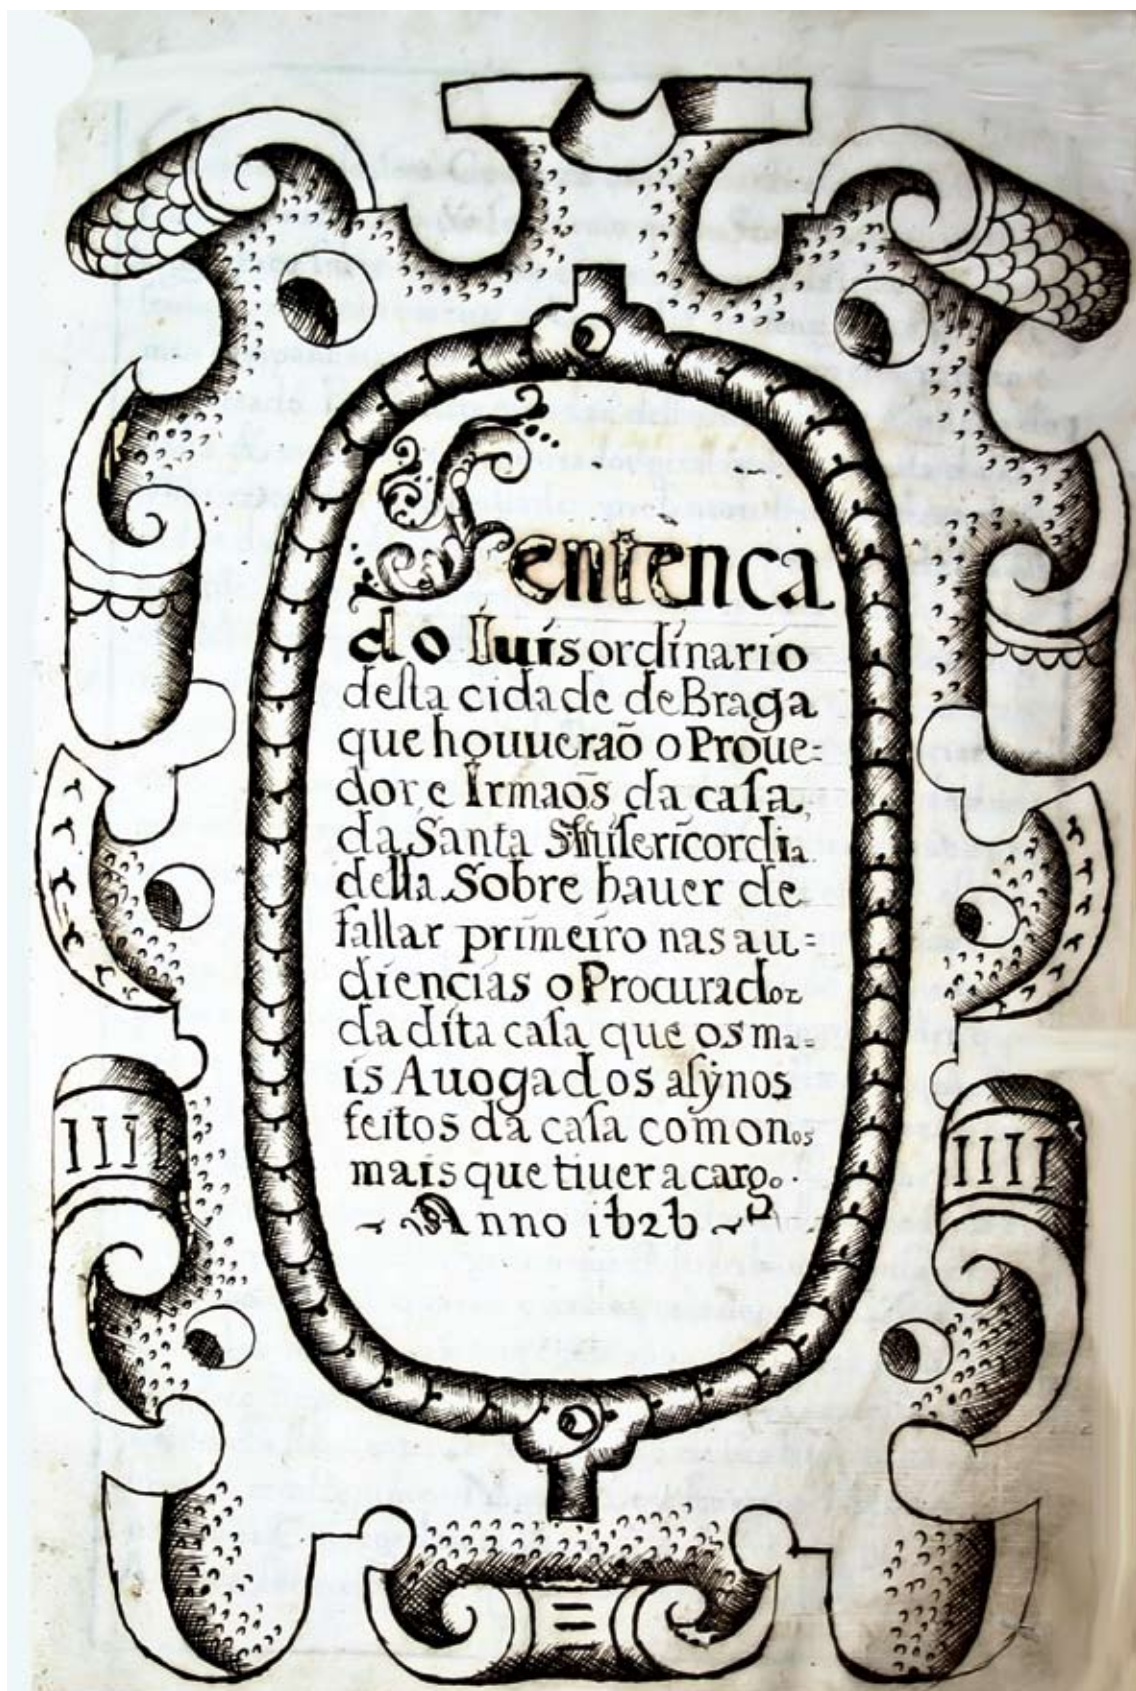 Sentença
do Iuis ordinario
desta cidade de Braga
que houueraõ o Proue=
dor, e Irmaõs da casa,
da Santa Misericordia
della Sobre hauer de
fallar primeiro nas au=
diencias o Procurador
da dita casa que os ma=
is Auogados asy nos
feitos da casa como nos
mais que tiuer a cargo.
~ Anno 1626 ~